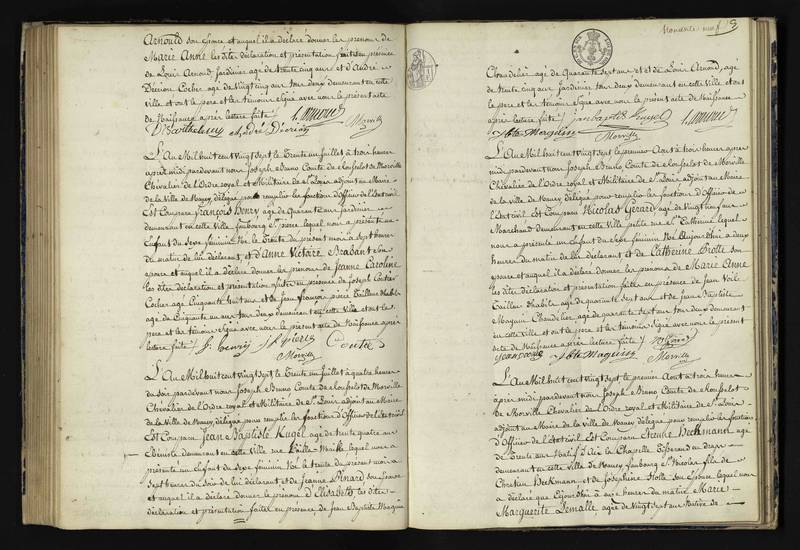 Arnould son épouse et auquel il a déclaré donner les prénoms de
Marie Anne les dites déclaration et présentation faites en présence
de Louis Arnoud, jardinier agé de trente cinq ans et d'André
Dérion Cocher agé de vingt cinq ans tous deux demeurant en cette
ville et ont le pere et les témoins signé avec nous le présent acte
de Naissance après lecture faite
andré Dérion
Morville
L'An Mil huit cent vingt sept le Trente un juillet à trois heures
après midi pardevant nous Joseph Bruno Comte de Rousselot de Morville
Chevalier de l'Ordre royal et Militaire de St Louis adjoint au Maire
de la Ville de Nancy délégué pour remplir les fonctions d'Officier de l'Etat civil
Est Comparu François Henry agé de Quarante ans jardinier
demeurant en cette Ville faubourg St pierre lequel nous a présenté un
Enfant du Sexe féminin Né le Trente du présent mois à sept heures
du matin de lui déclarant, et d'Anne Victoire Brabant son
épouse et auquel il a déclaré donner les prénoms de Jeanne Caroline
les dites déclaration et présentation faites en présence de Joseph Contal
Cocher agé Cinquante huit ans et de Jean François pierre Tailleur d'habits
agé de Cinquante un ans tous deux demeurant en cette Ville et ont le
pere et les témoins signé avec nous le présent acte de Naissance après
lecture faite
f. henry
Morville
L'An Mil huit cent vingt sept le Trente un juillet à quatre heures
du soir pardevant nous Joseph Bruno Comte de Rousselot de Morville
Chevalier de l'Ordre royal et Militaire de St Louis adjoint au Maire
de la Ville de Nancy délégué pour remplir les fonctions d'Officier de l'Etat civil
Est Comparu Jean Baptiste Kugel agé de trente quatre ans
Ebéniste demeurant en cette Ville rue lequel nous a
présenté un Enfant du Sexe féminin Né le trente du présent mois à
sept heures du soir de lui déclarant et de Jeanne Pinard son épouse
et auquel il a déclaré donner le prénom d'Elisabeth les dites
déclaration et présentation faites en présence de Jean Baptiste Maquin
Nonante neuf
Chandelier agé de Quarante sept ans et de Louis Arnoud, agé
de trente cinq ans jardinier tous deux demeurant en cette Ville et ont
le pere et les témoins signé avec nous le présent acte de Naissance
après lecture faite
jean baptiste Kugel
Morville
L'An Mil huit cent vingt sept le premier Aout à trois heures après
midi pardevant nous Joseph Bruno Comte de Rousselot de Morville
Chevalier de l'Ordre royal et Militaire de St Louis adjoint au Maire
de la Ville de Nancy délégué pour remplir les fonctions d'Officier de
l'Etat civil Est Comparu Nicolas Gérard agé de Vingt neuf ans
Marchand demeurant en cette Ville petite rue Ste Catherine lequel
nous a présenté un Enfant du Sexe féminin Né Aujourd'hui à deux
heures du matin de lui déclarant et de Catherine Diotte son
épouse et auquel il a déclaré donner les prénoms de Marie Anne
les dites déclaration et présentation faites en présence de Jean
Tailleur d'habits agé de quarante sept ans et de Jean Baptiste
Maquin Chandelier agé de quarante sept ans tous deux demeurant
en cette Ville et ont le pere et les témoins signé avec nous le présent
acte de Naissance après lecture faite
Morville
L'An Mil huit cent vingt sept le premier Aout à trois heures
après midi pardevant nous Joseph Bruno Comte de Rousselot
de Morville Chevalier de l'Ordre royal et Militaire de St Louis
adjoint au Maire de la Ville de Nancy délégué pour remplir les fonctions
d'Officier de l'Etat civil Est Comparu Heckmann agé
de Trente ans Natif d'Aix la Chapelle Tisserand en draps
demeurant en cette Ville de Nancy faubourg St Nicolas fils de
Chrétien Heckmann et de Josephine Holle son épouse lequel nous
a déclaré que Cejourd'hui à une heure du matin Marie
Marguerite Demalle agée de Vingt sept ans Native de